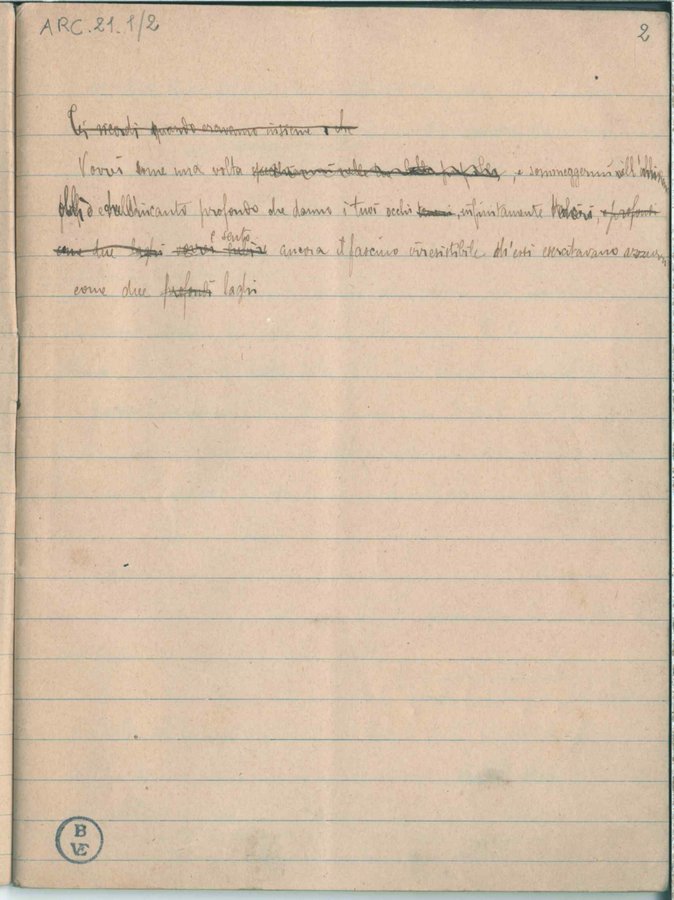 ARC.21.1/2
2
Ti ricordi quando eravamo insieme, che
Vorrei come una volta , e sommeggermi nell'
oblìo e nell'incanto profondo che danno i tuoi occhi sereni, infinitamente e profondi
e sento
come due laghi vorrei ancora il fascino irresistibile ch'essi esercitavano
come due profondi laghi
B
VE